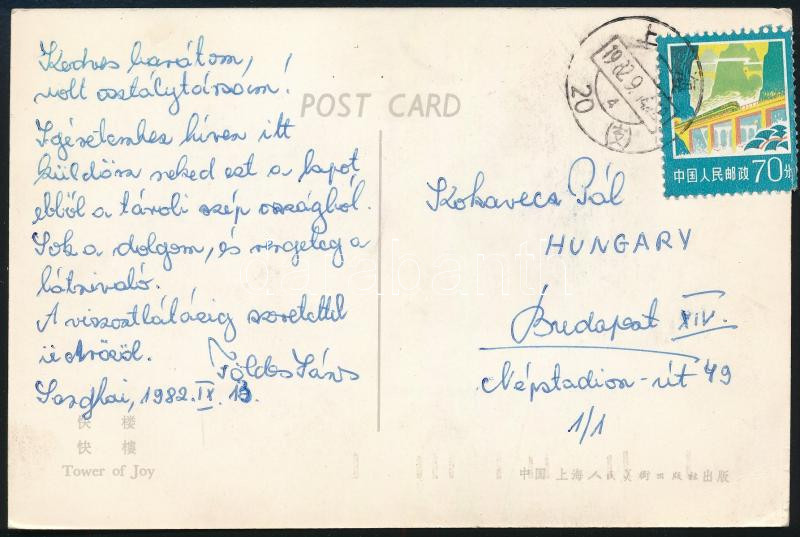 Kedves barátom,
volt osztálytársam!
Igéretemhez híven itt
küldöm neked ezt a lapot
ebből a távoli szép országból.
Sok a dolgom, és rengeteg a
látnivaló.
A viszontlátásig szeretettel
üdvözöl.
Földes János
Sanghai, 1982.IX.13.
快 楼
快 樓
Tower of Joy
POST CARD
上
1982.9.14
4
20
(支)
中国人民邮政 70分
Kokavecz Pál
HUNGARY
Budapest XIV.
Népstadion-út 49
1/1
中国 上海人民美術出版社出版